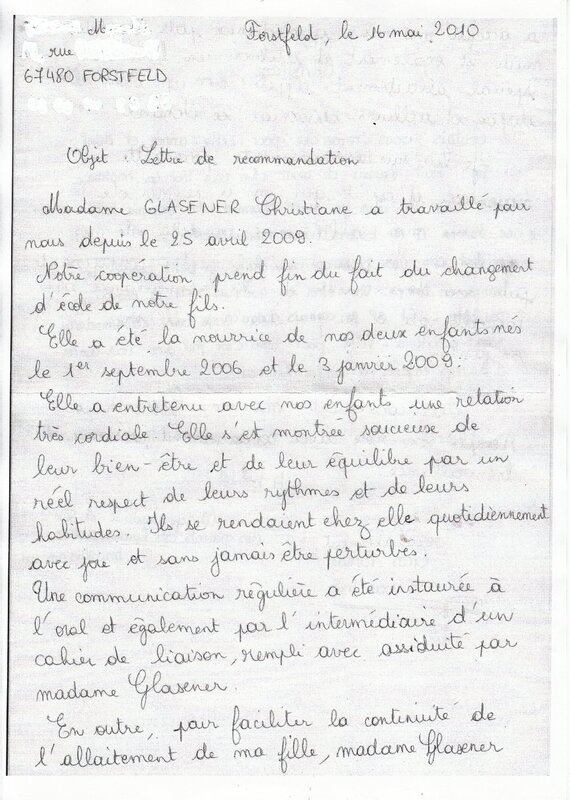 M.
rue
67480 FORSTFELD
Forstfeld, le 16 mai 2010
Objet : Lettre de recommandation
Madame GLASENER Christiane a travaillé pour
nous depuis le 25 avril 2009.
Notre coopération prend fin du fait du changement
d'école de notre fils.
Elle a été la nourrice de nos deux enfants nés
le 1er septembre 2006 et le 3 janvier 2009.
Elle a entretenu avec nos enfants une relation
très cordiale. Elle s'est montrée soucieuse de
leur bien-être et de leur équilibre par un
réel respect de leurs rythmes et de leurs
habitudes. Ils se rendaient chez elle quotidiennement
avec joie et sans jamais être perturbés.
Une communication régulière a été instaurée à
l'oral et également par l'intermédiaire d'un
cahier de liaison, rempli avec assiduité par
madame Glasener.
En outre, pour faciliter la continuité de
l'allaitement de ma fille, madame Glasener